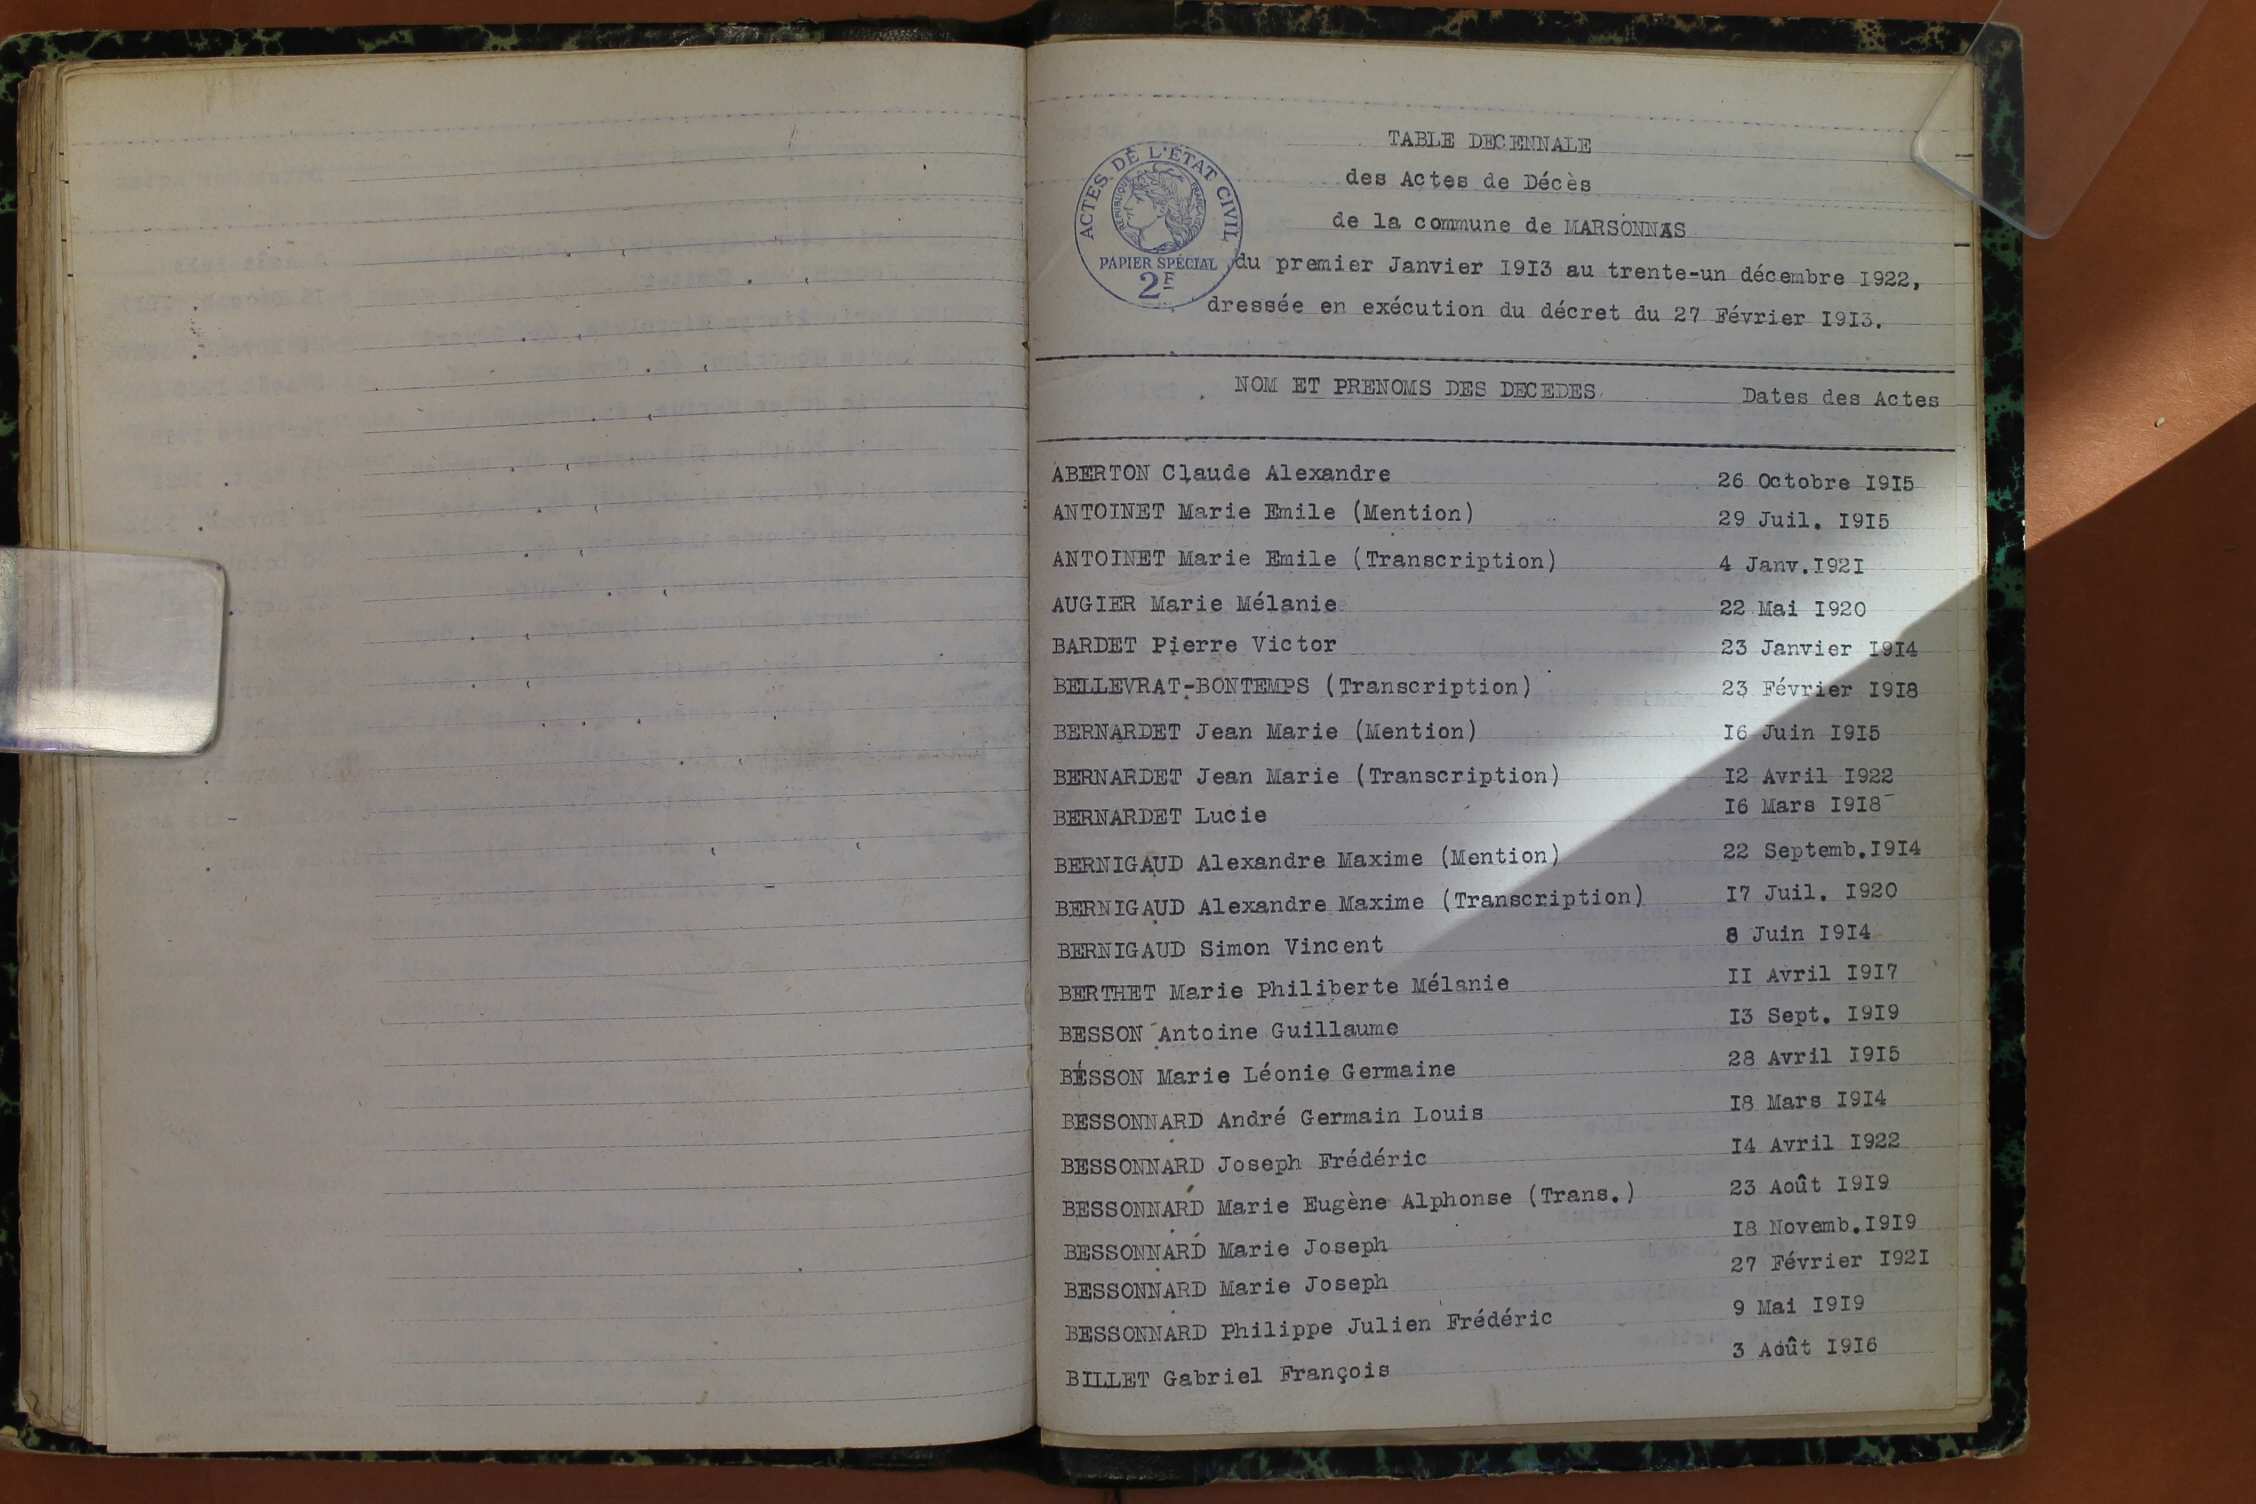 TABLE DECENNALE
des Actes de Décès
de la commune de MARSONNAS
du premier Janvier I9I3 au trente-un décembre I922,
dressée en exécution du décret du 27 Février I9I3.
ACTES DE L'ÉTAT CIVIL
RÉPUBLIQUE FRANÇAISE
PAPIER SPÉCIAL
2F
NOM ET PRENOMS DES DECEDES Dates des Actes
ABERTON Claude Alexandre 26 Octobre I9I5
ANTOINET Marie Emile (Mention) 29 Juil. I9I5
ANTOINET Marie Emile (Transcription) 4 Janv.I92I
AUGIER Marie Mélanie 22 Mai I920
BARDET Pierre Victor 23 Janvier I9I4
BELLEVRAT-BONTEMPS (Transcription) 23 Février I9I8
BERNARDET Jean Marie (Mention) I6 Juin I9I5
BERNARDET Jean Marie (Transcription) I2 Avril I922
BERNARDET Lucie I6 Mars I9I8
BERNIGAUD Alexandre Maxime (Mention) 22 Septemb.I9I4
BERNIGAUD Alexandre Maxime (Transcription) I7 Juil. I920
BERNIGAUD Simon Vincent 8 Juin I9I4
BERTHET Marie Philiberte Mélanie II Avril I9I7
BESSON Antoine Guillaume I3 Sept. I9I9
BESSON Marie Léonie Germaine 28 Avril I9I5
BESSONNARD André Germain Louis I8 Mars I9I4
BESSONNARD Joseph Frédéric I4 Avril I922
BESSONNARD Marie Eugène Alphonse (Trans.) 23 Août I9I9
BESSONNARD Marie Joseph I8 Novemb.I9I9
BESSONNARD Marie Joseph 27 Février I92I
BESSONNARD Philippe Julien Frédéric 9 Mai I9I9
BILLET Gabriel François 3 Août I9I6